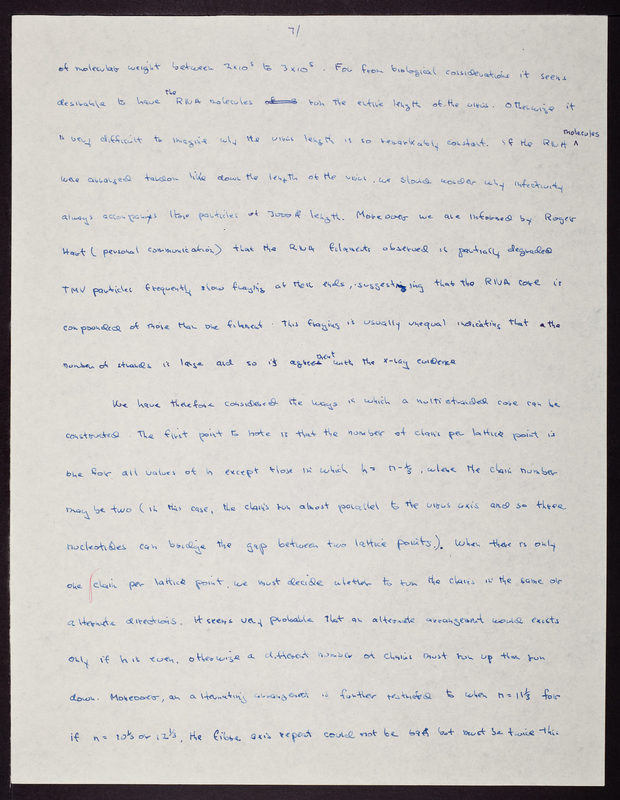 7/
of molecular weight between 2x10⁵ to 3x10⁵. For from biological considerations it seems
desirable to have the RNA molecules run the entire length of the virus. Otherwise it
is very difficult to imagine why the virus length is so remarkably constant. If the RNA molecules
were arranged tandom like down the length of the virus, we should wonder why infectivity
always accompanys those particles of 3000Å length. Moreover we are informed by Roger
Hart (personal communication) that the RNA filaments observed in partially degraded
TMV particles frequently show fraying at their ends, suggesting that the RNA core is
compounded of more than one filament. This fraying is usually unequal indicating that the
number of strands is large and so is agreement with the x-ray evidence
We have therefore considered the ways in which a multistranded core can be
constructed. The first point to note is that the number of chains per lattice point is
one for all values of n except those in which h = n-⅓, where the chain number
may be two (in this case, the chains run almost parallel to the virus axis and so three
nucleotides can bridge the gap between two lattice points). When there is only
one chain per lattice point, we must decide whether to run the chains in the same or
alternate directions. It seems very probable that an alternate arrangement would exists
only if h is even, otherwise a different number of chains must run up than run
down. Moreover, an alternating arrangement is further restricted to when n=11⅓ for
if n=10⅓ or 12⅓, the fibre axis repeat could not be 68Å but must be twice this